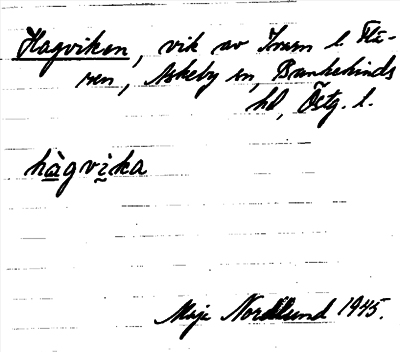 Hagviken, vik av
ren, Askeby sn, Bankekinds
hd, Östg. l.
hàgvìka
Maja Nordlund 1945.